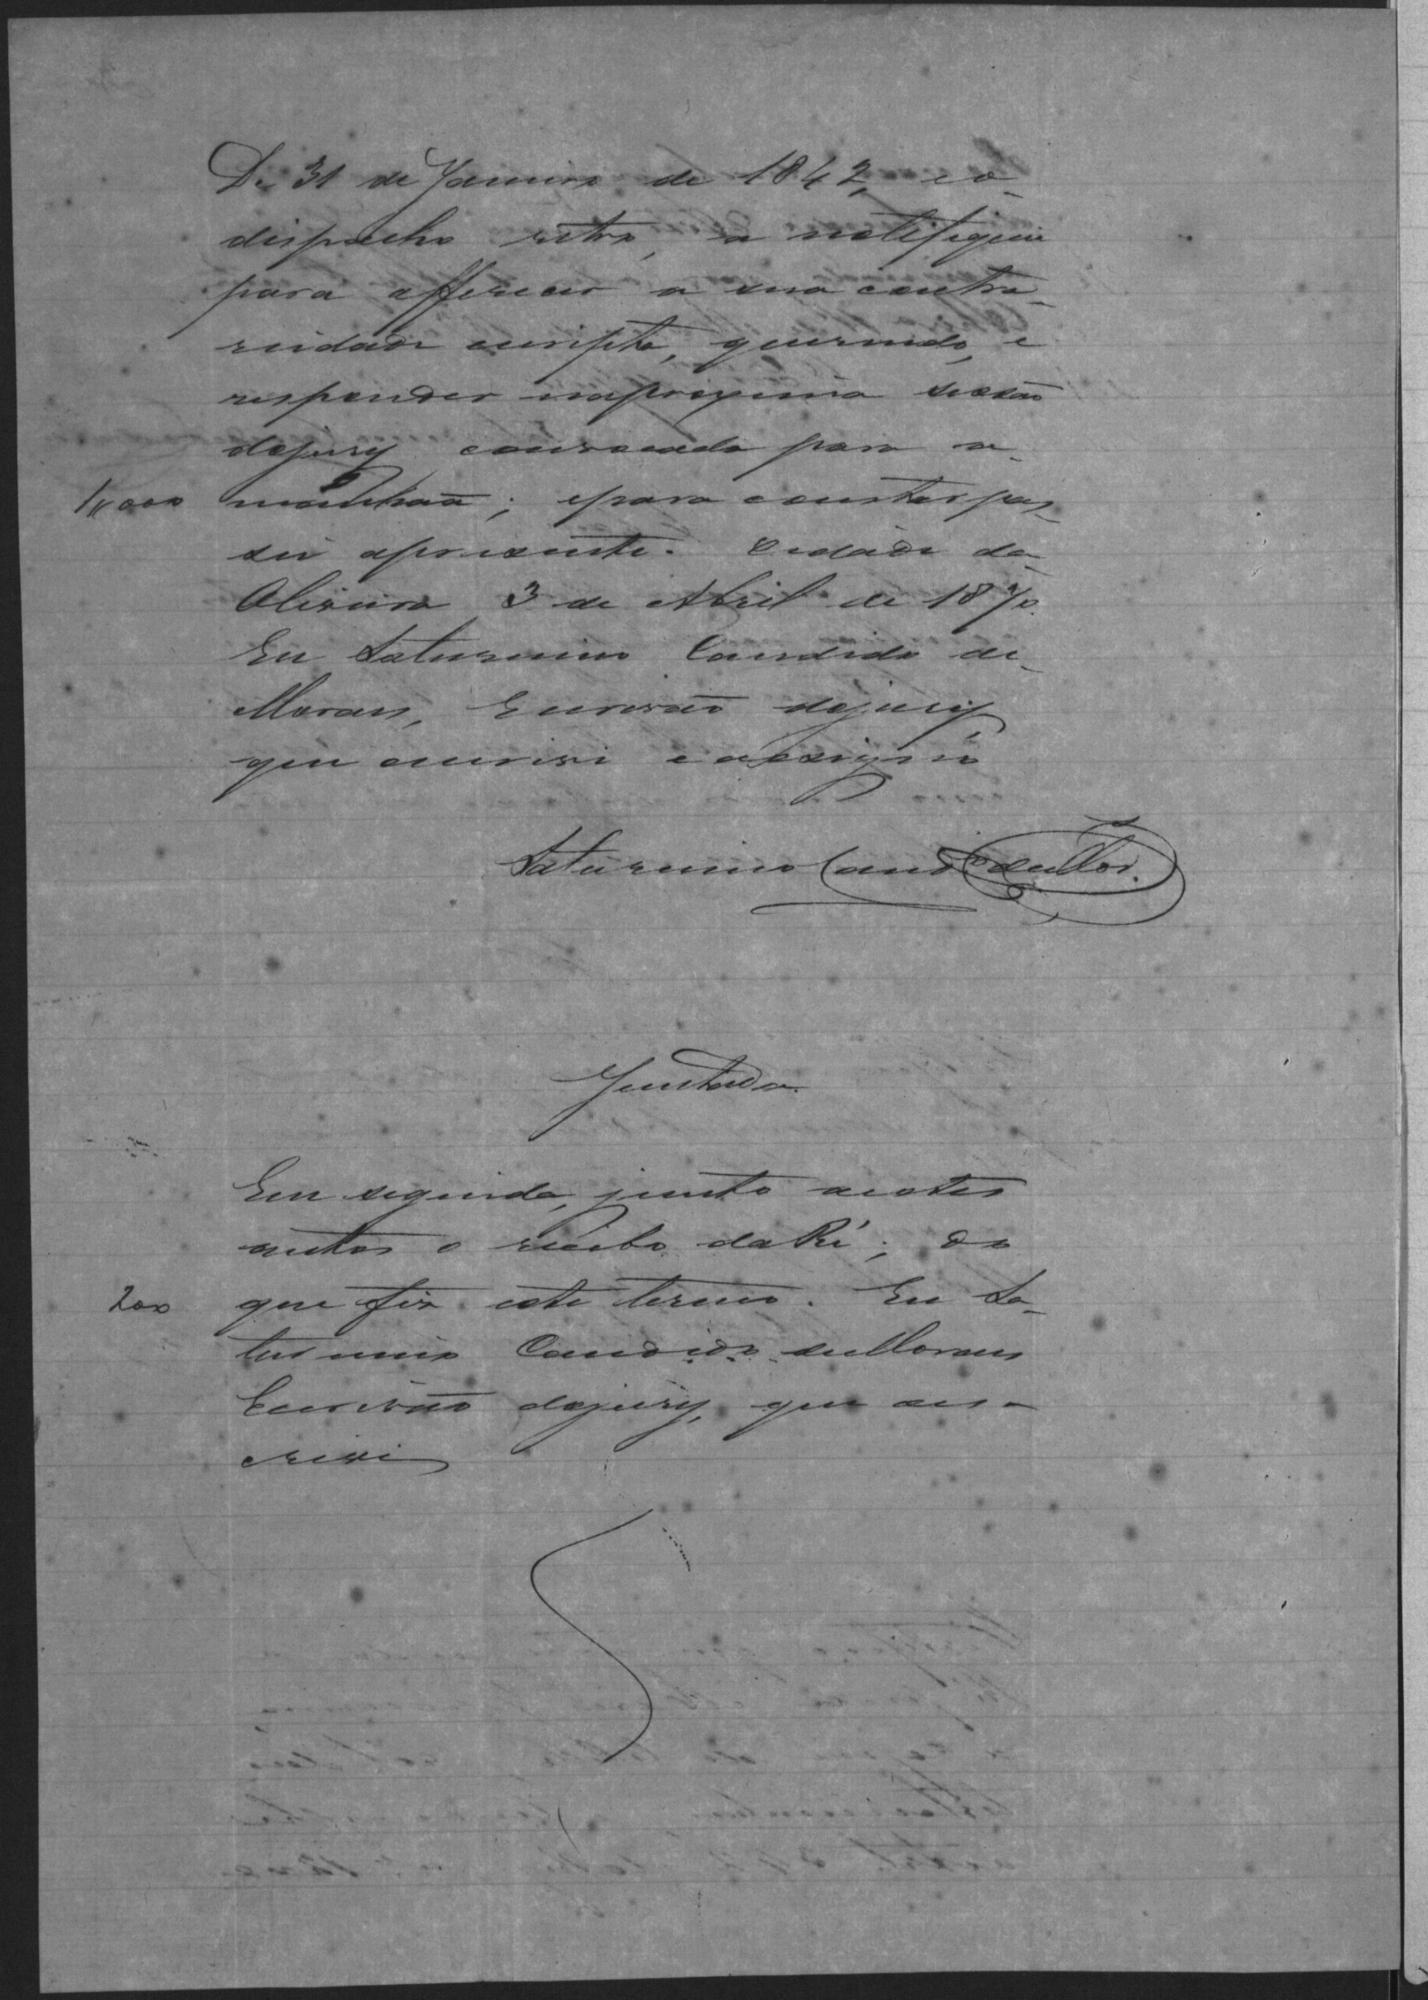 De 31 de Janeiro de 1842, e o
despacho retro, a notifiquei
para offerecer a sua contra-
riedade escripta, querendo, e
responder na proxima sessão
do jury convocada para a-
1$000 manhaã; e para constar pas-
sei a presente. Cidade da
Oliveira 3 de Abril de 1870.
Eu Saturnino Candido de
Moraes, Escrivão do jury
que escrivi e assigno
Saturnino Candido de Mor.
Juntada.
Em seguida, junto a estes
autos o recibo da Ré; do
200 que fiz este termo. Eu Sa-
turnino Candido de Moraes
Escrivão do jury, que es-
crivi